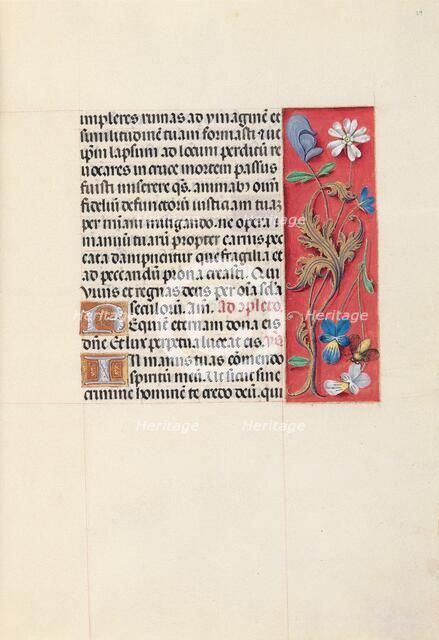 impleres ruinas ad ymaginē et
similitudinē tuam formasti & ue
ip̄m lapsum ad locum perditū re
uocares in cruce mortem passus
fuisti miserere qs. animab9 oīm
fidelū defunctorū iusticiam tuaȝ
per tuam mitigando. ne opera
manuū tuarū propter carnis pec
cata dampnentur que fragilia et
ad peccandū prona creasti. Qui
uiuis et regnas deus per oīa sc̄la
seculorū. am. Ad cōpleto
Requiē eternam dona eis
dn̄e Et lux perpetua luceat eis.
In manus tuas cōmendo
spiritū meū. Ut sicut sine
crimine hominē te credo deū. qui
Heritage
Heritage
Heritage
Heritage
Heritage